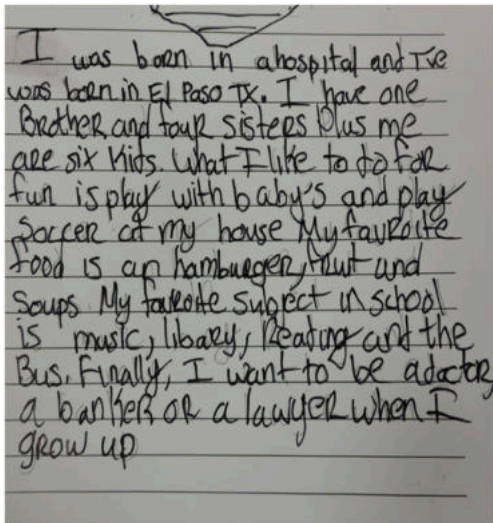 I was born in a hospital and I've
was born in El Paso TX. I have one
Brother and four sisters Plus me
are six kids. What I like to do for
fun is play with baby's and play
Soccer at my house My favroite
food is an hamburger, fruit and
Soups My favroite subject in school
is music, libary, Reating and the
Bus. Finally, I want to be a doctor,
a banker or a lawyer when I
grow up